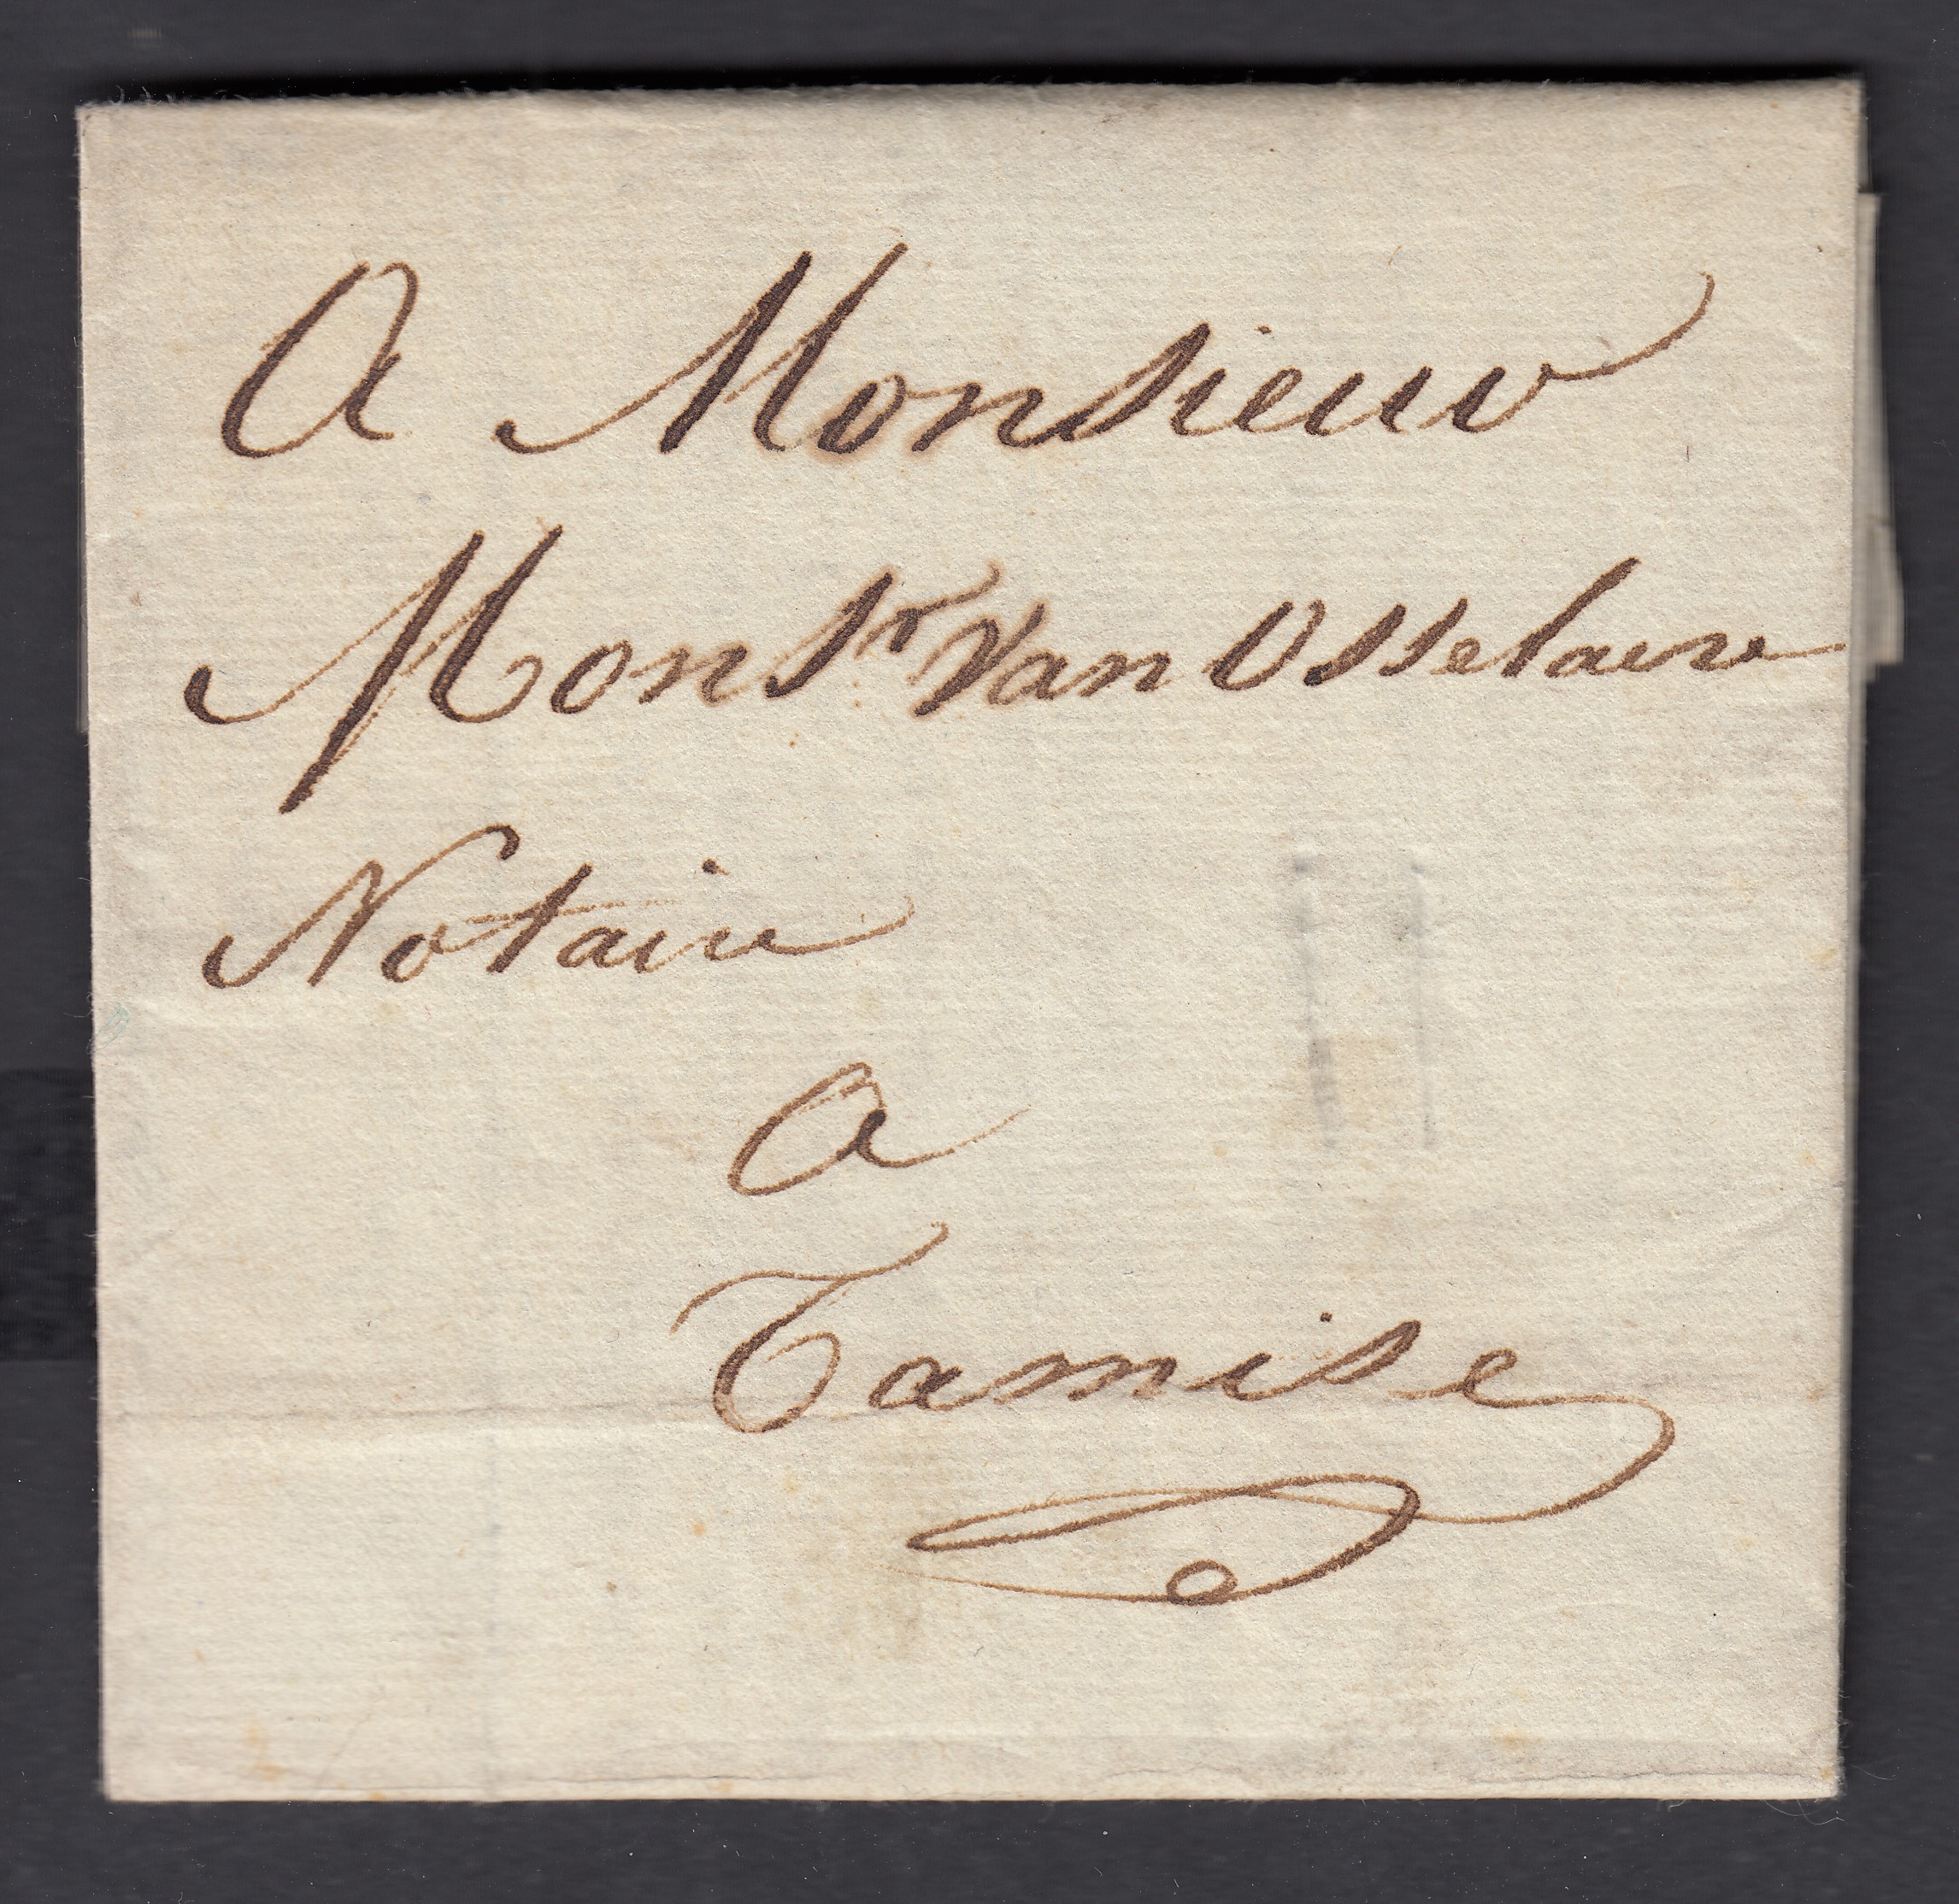 A Monsieur
Monsr Van Osselaere
Notaire
A
Tamise